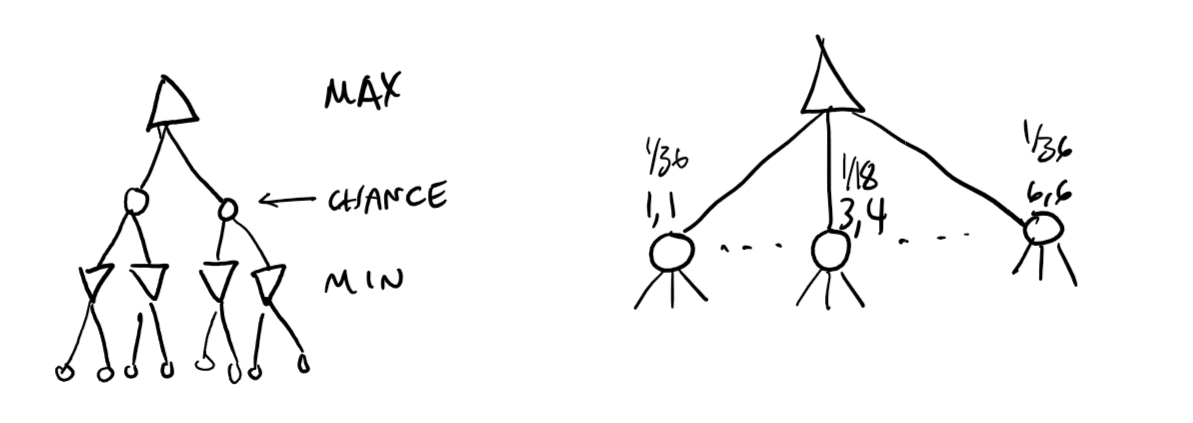 MAX
CHANCE
MIN
1/36
1,1
1/18
3,4
1/36
6,6